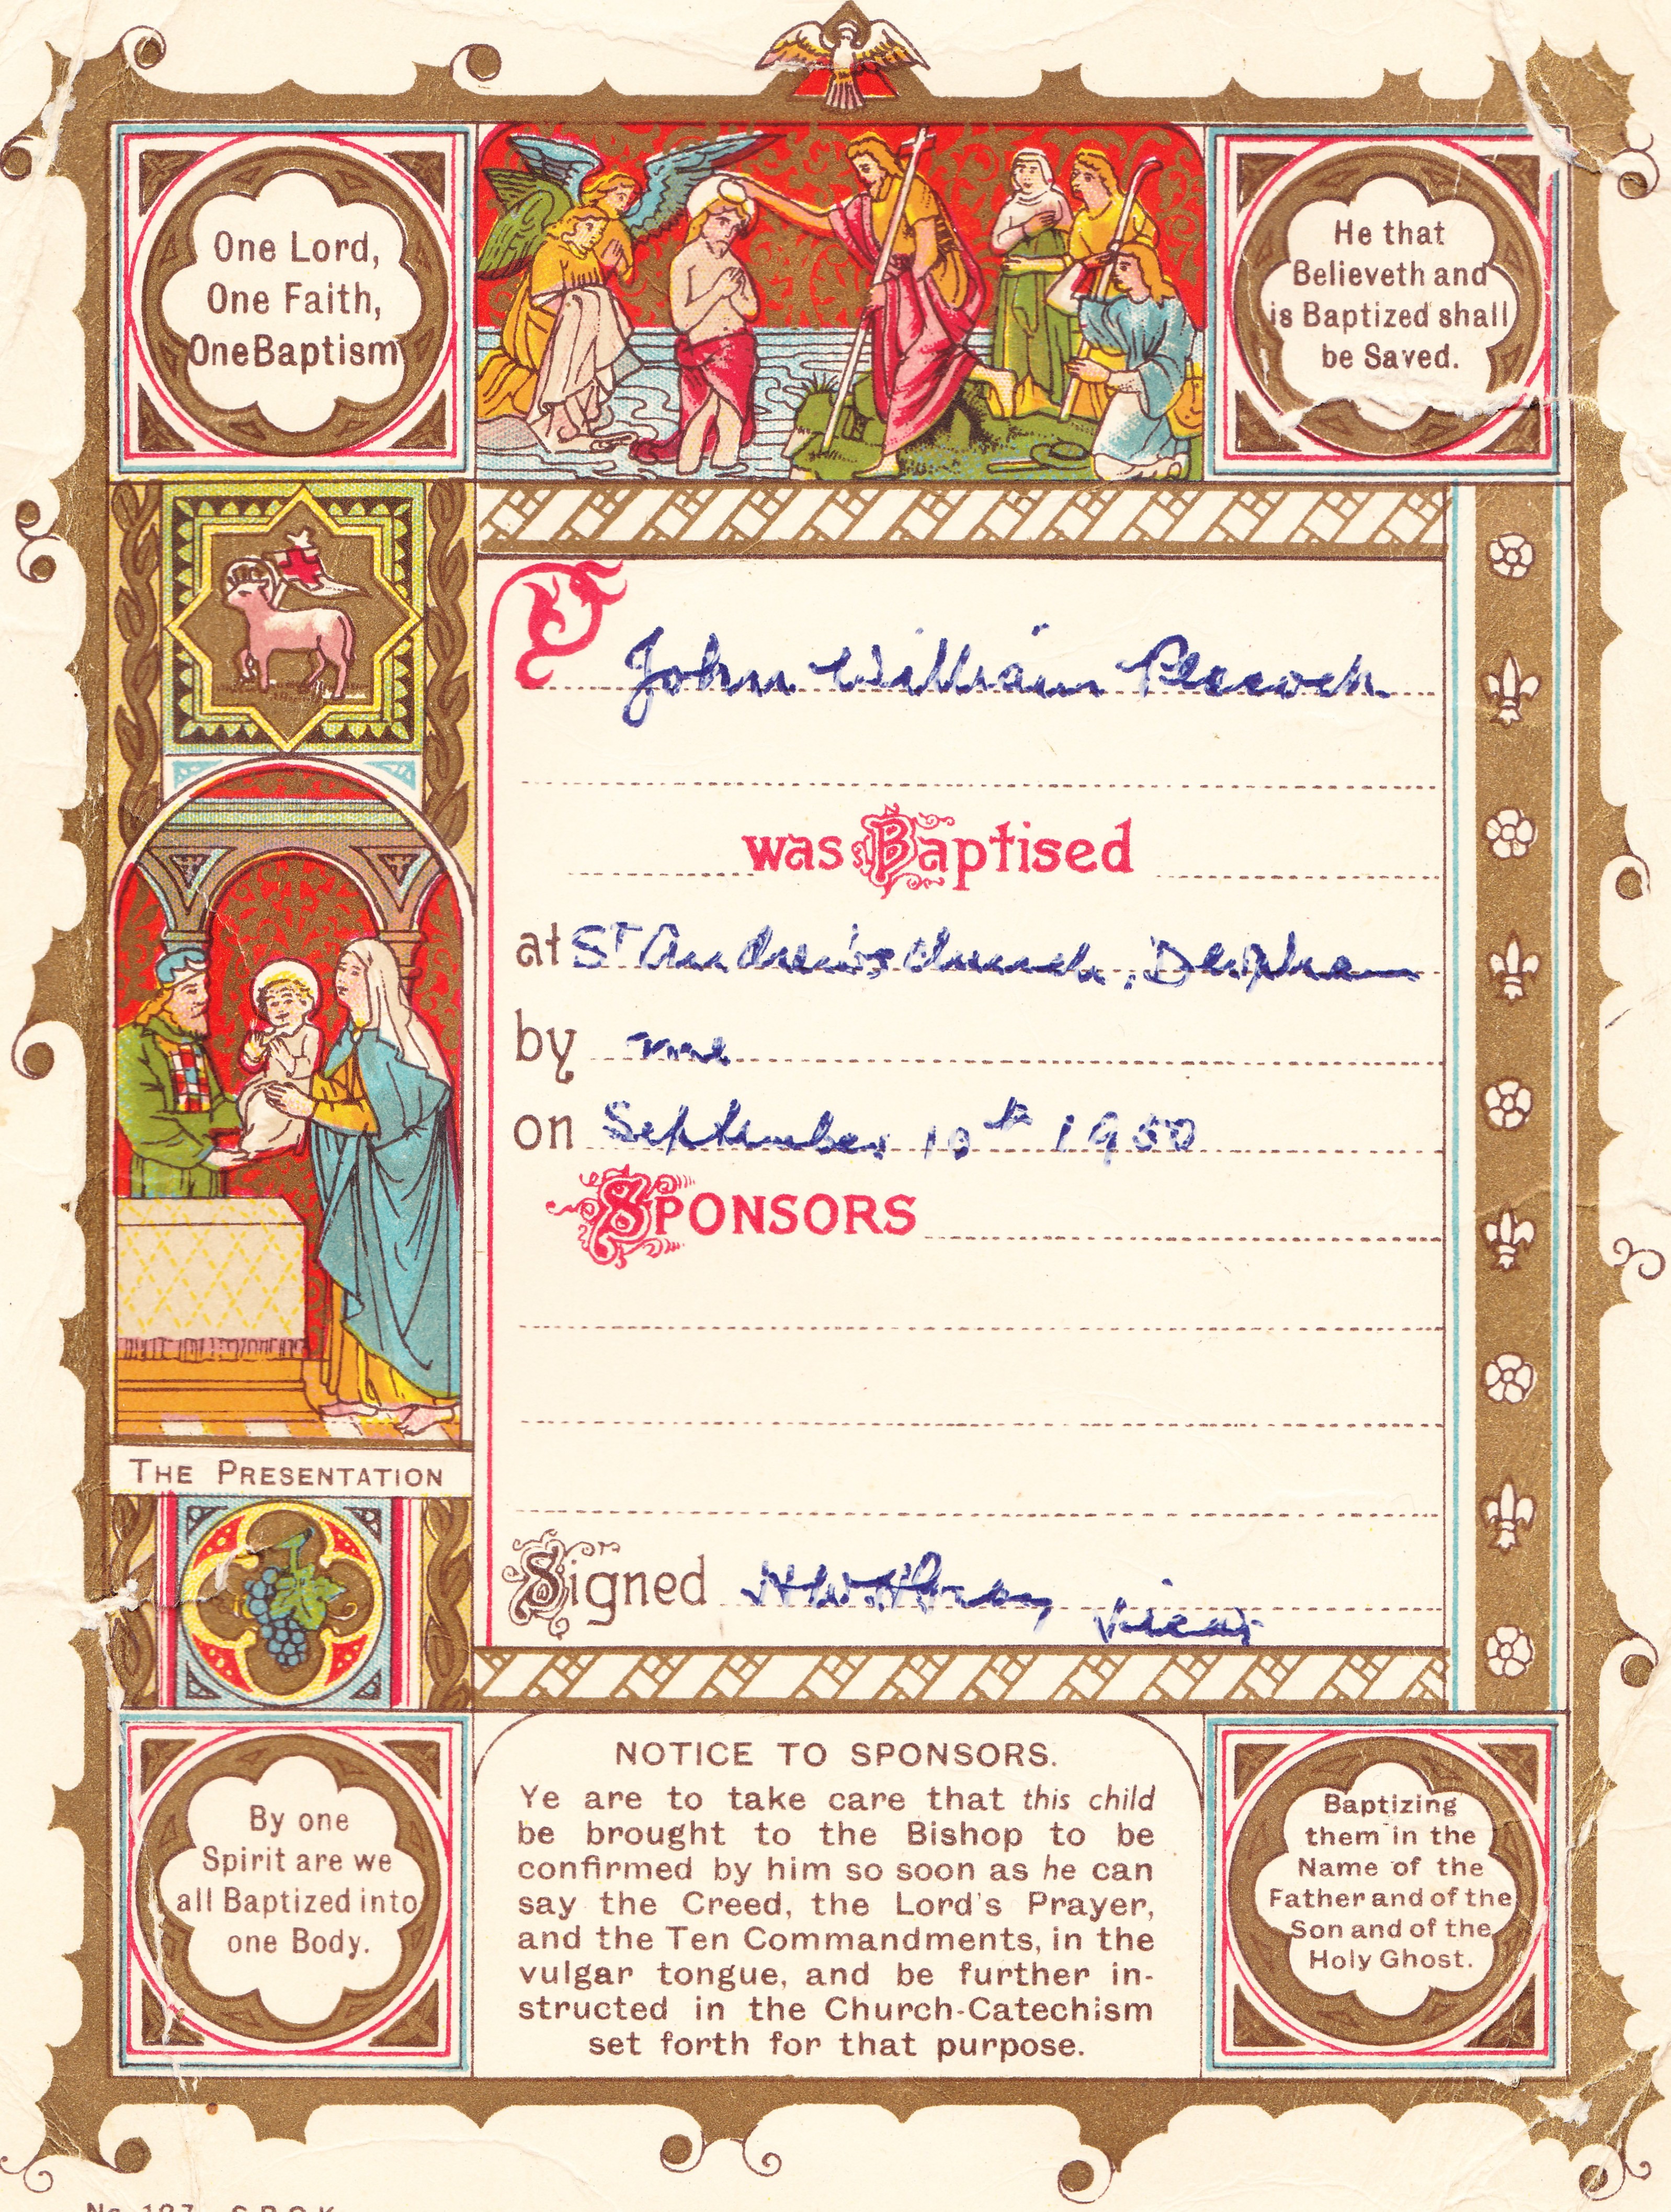 One Lord,
One Faith,
One Baptism
He that
Believeth and
is Baptized shall
be Saved.
John William Peacock
was Baptised
at St Andrew's Church, Deopham
by me
on September 10th 1950
SPONSORS
THE PRESENTATION
Signed Vicar
By one
Spirit are we
all Baptized into
one Body.
NOTICE TO SPONSORS.
Ye are to take care that this child
be brought to the Bishop to be
confirmed by him so soon as he can
say the Creed, the Lord's Prayer,
and the Ten Commandments, in the
vulgar tongue, and be further in-
structed in the Church-Catechism
set forth for that purpose.
Baptizing
them in the
Name of the
Father and of the
Son and of the
Holy Ghost.